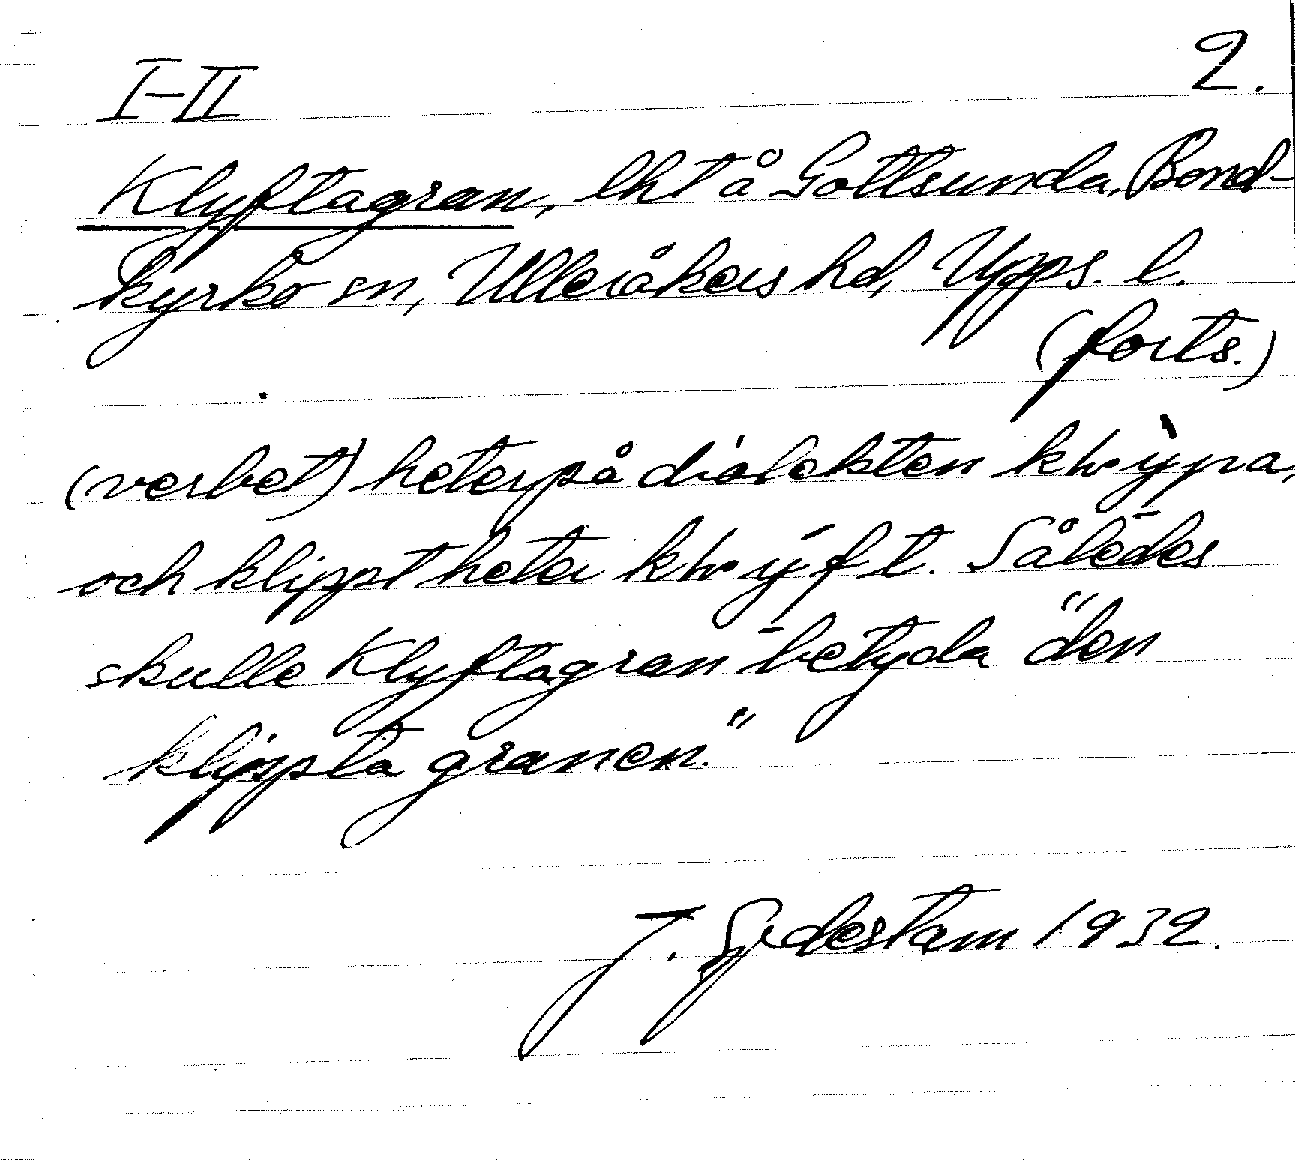 I-II 2.
Klyftagran, lht å Gottsunda, Bond-
kyrko sn, Ulleråkers hd, Upps. l.
(forts.)
(verbet) heter på dialekten
och klippt heter Således
skulle Klyftagran betyda "den
klippta granen."
J. Sjdestam 1932.